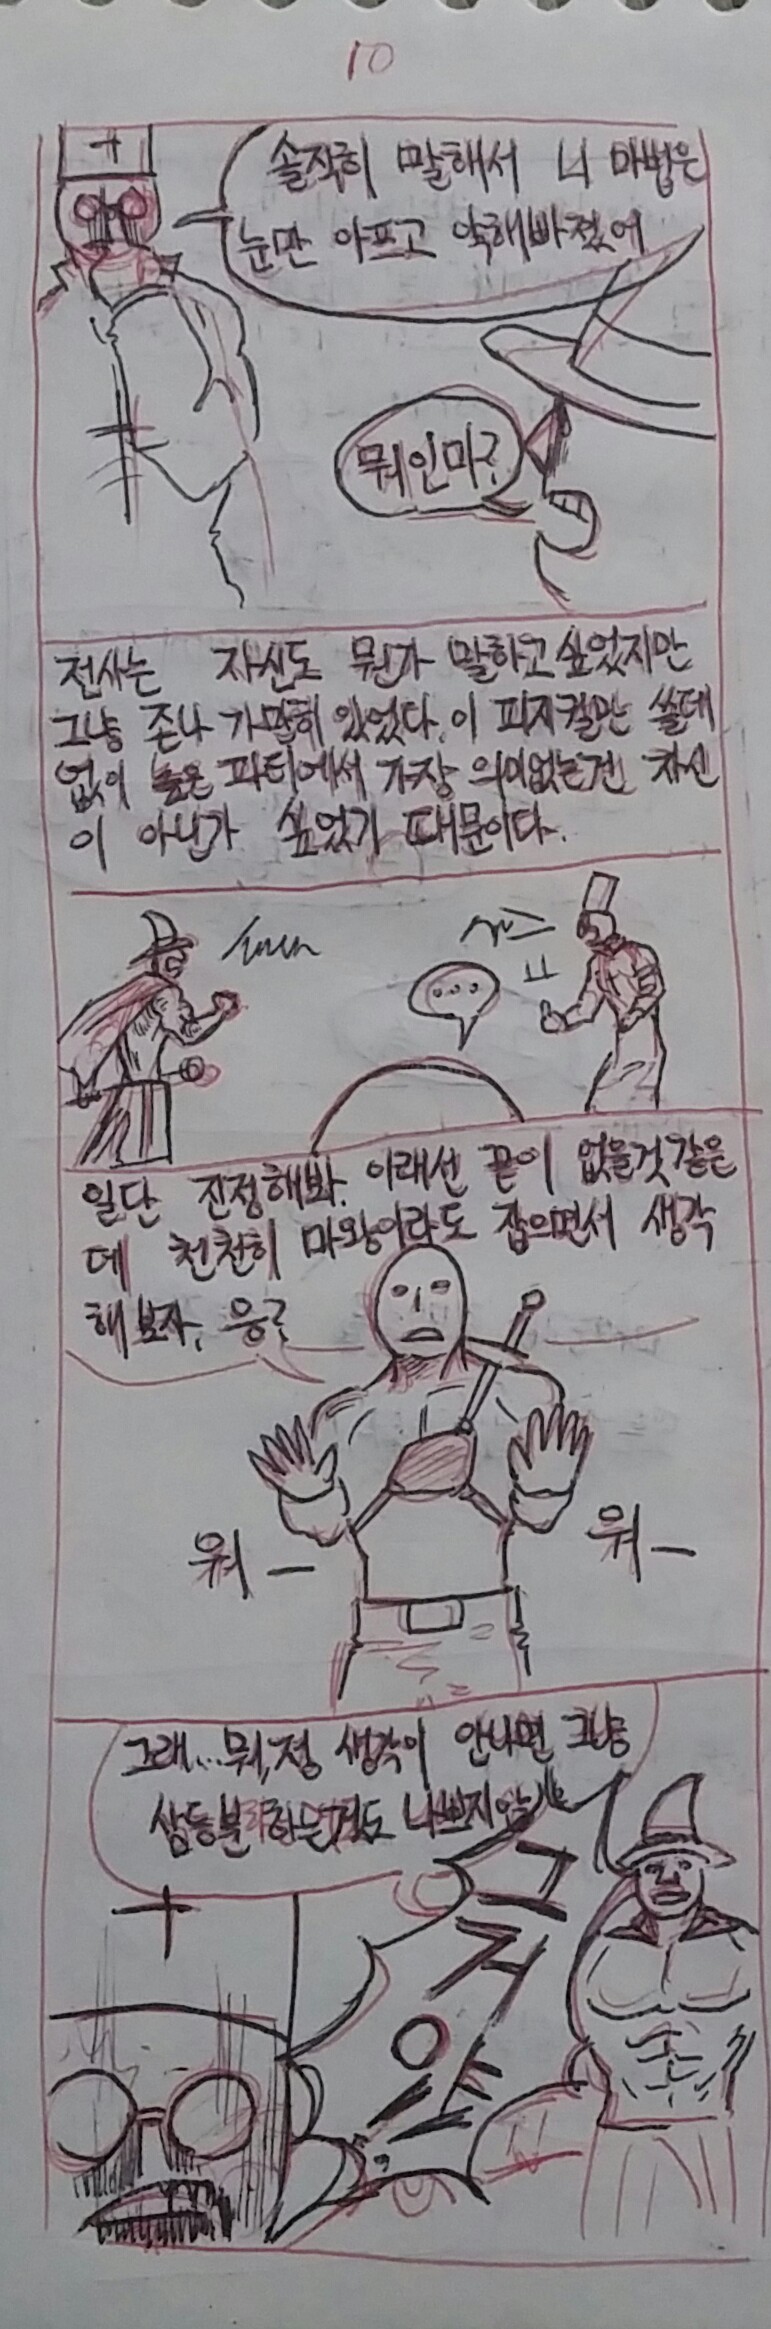 10
솔직히 말해서 니 마법은
눈만 아프고 약해빠졌어
뭐인마?
전사는 자신도 뭔가 말하고 싶었지만
그냥 존나 가만히 있었다. 이 피지컬만 쓸데
없이 높은 파티에서 가장 의미없는건 자신
이 아닌가 싶었기 때문이다.
...
일단 진정해봐. 이래선 끝이 없을것 같은
데 천천히 마왕이라도 잡으면서 생각
해보자, 응?
워—
워—
그래... 뭐, 정 생각이 안나면 그냥
삼등분하는것도 나쁘지않
그거